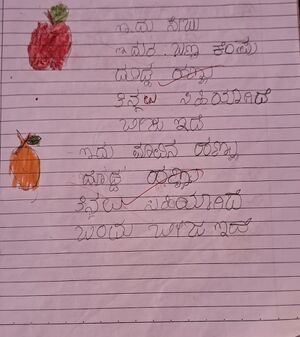 ಇದು ಸೇಬು
ಇದರ ಬಣ್ಣ ಕೆಂಪು
ದೊಡ್ಡ ಹಣ್ಣು
ತಿನ್ನಲು ಸಿಹಿಯಾಗಿದೆ
ಬೀಜ ಇದೆ
ಇದು ಮಾವಿನ ಹಣ್ಣು
ದೊಡ್ಡ ಹಣ್ಣು
ತಿನ್ನಲು ಸಿಹಿಯಾಗಿದೆ
ಒಂದು ಬೀಜ ಇದೆ